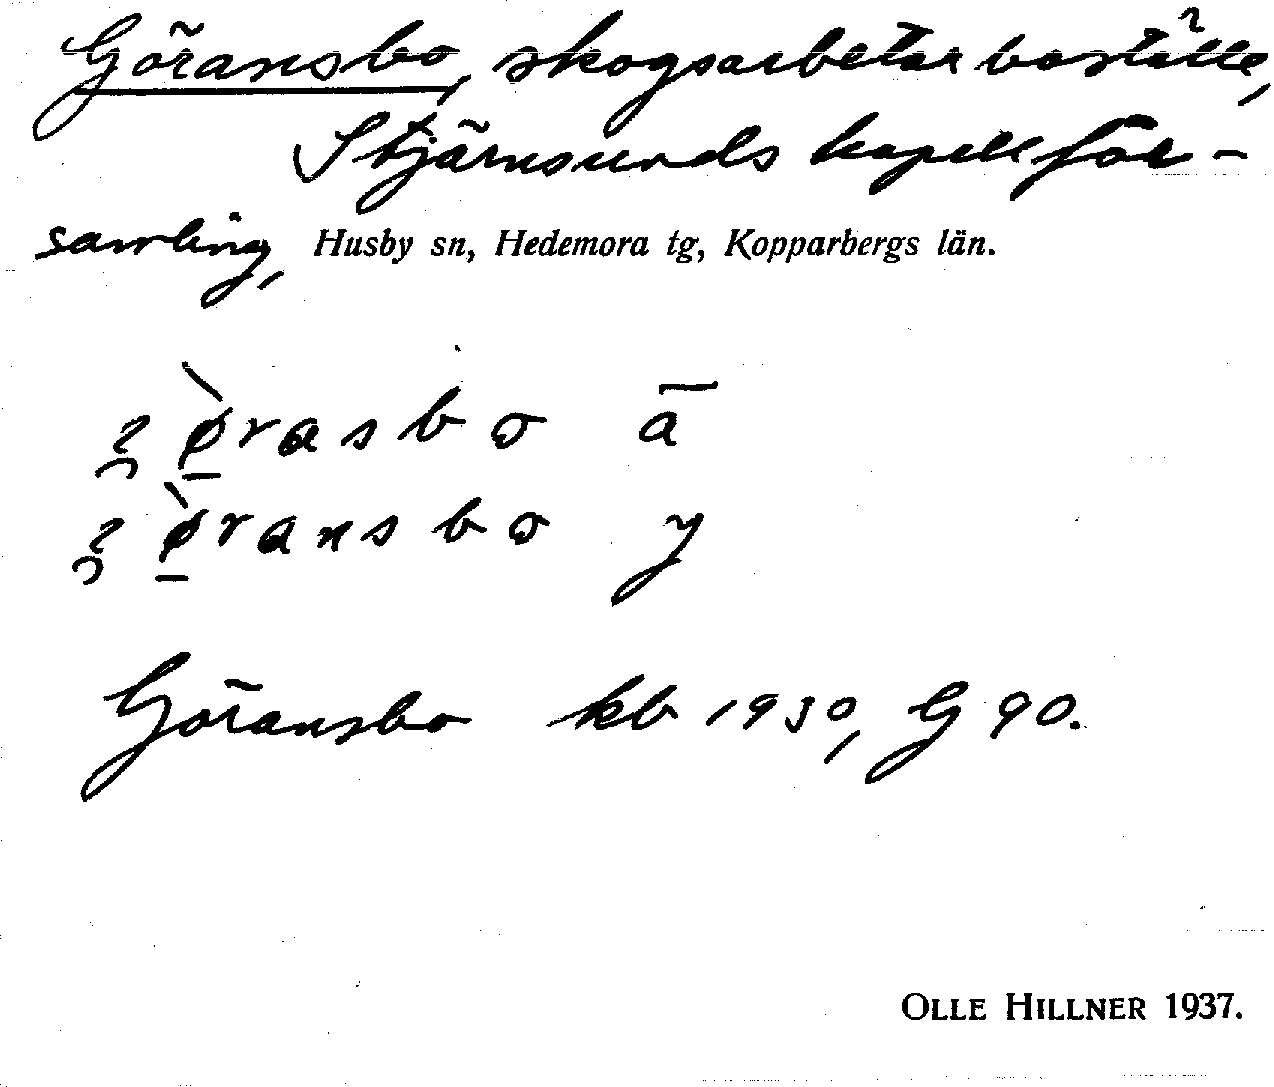 Göransbo, skogsarbetarboställe,
Stjärnsunds kapellför-
samling, Husby sn, Hedemora tg, Kopparbergs län.
ʒø̠̀rasbo ā
ʒø̠̀ransbo y
Göransbo kb 1930, G 90.
OLLE HILLNER 1937.